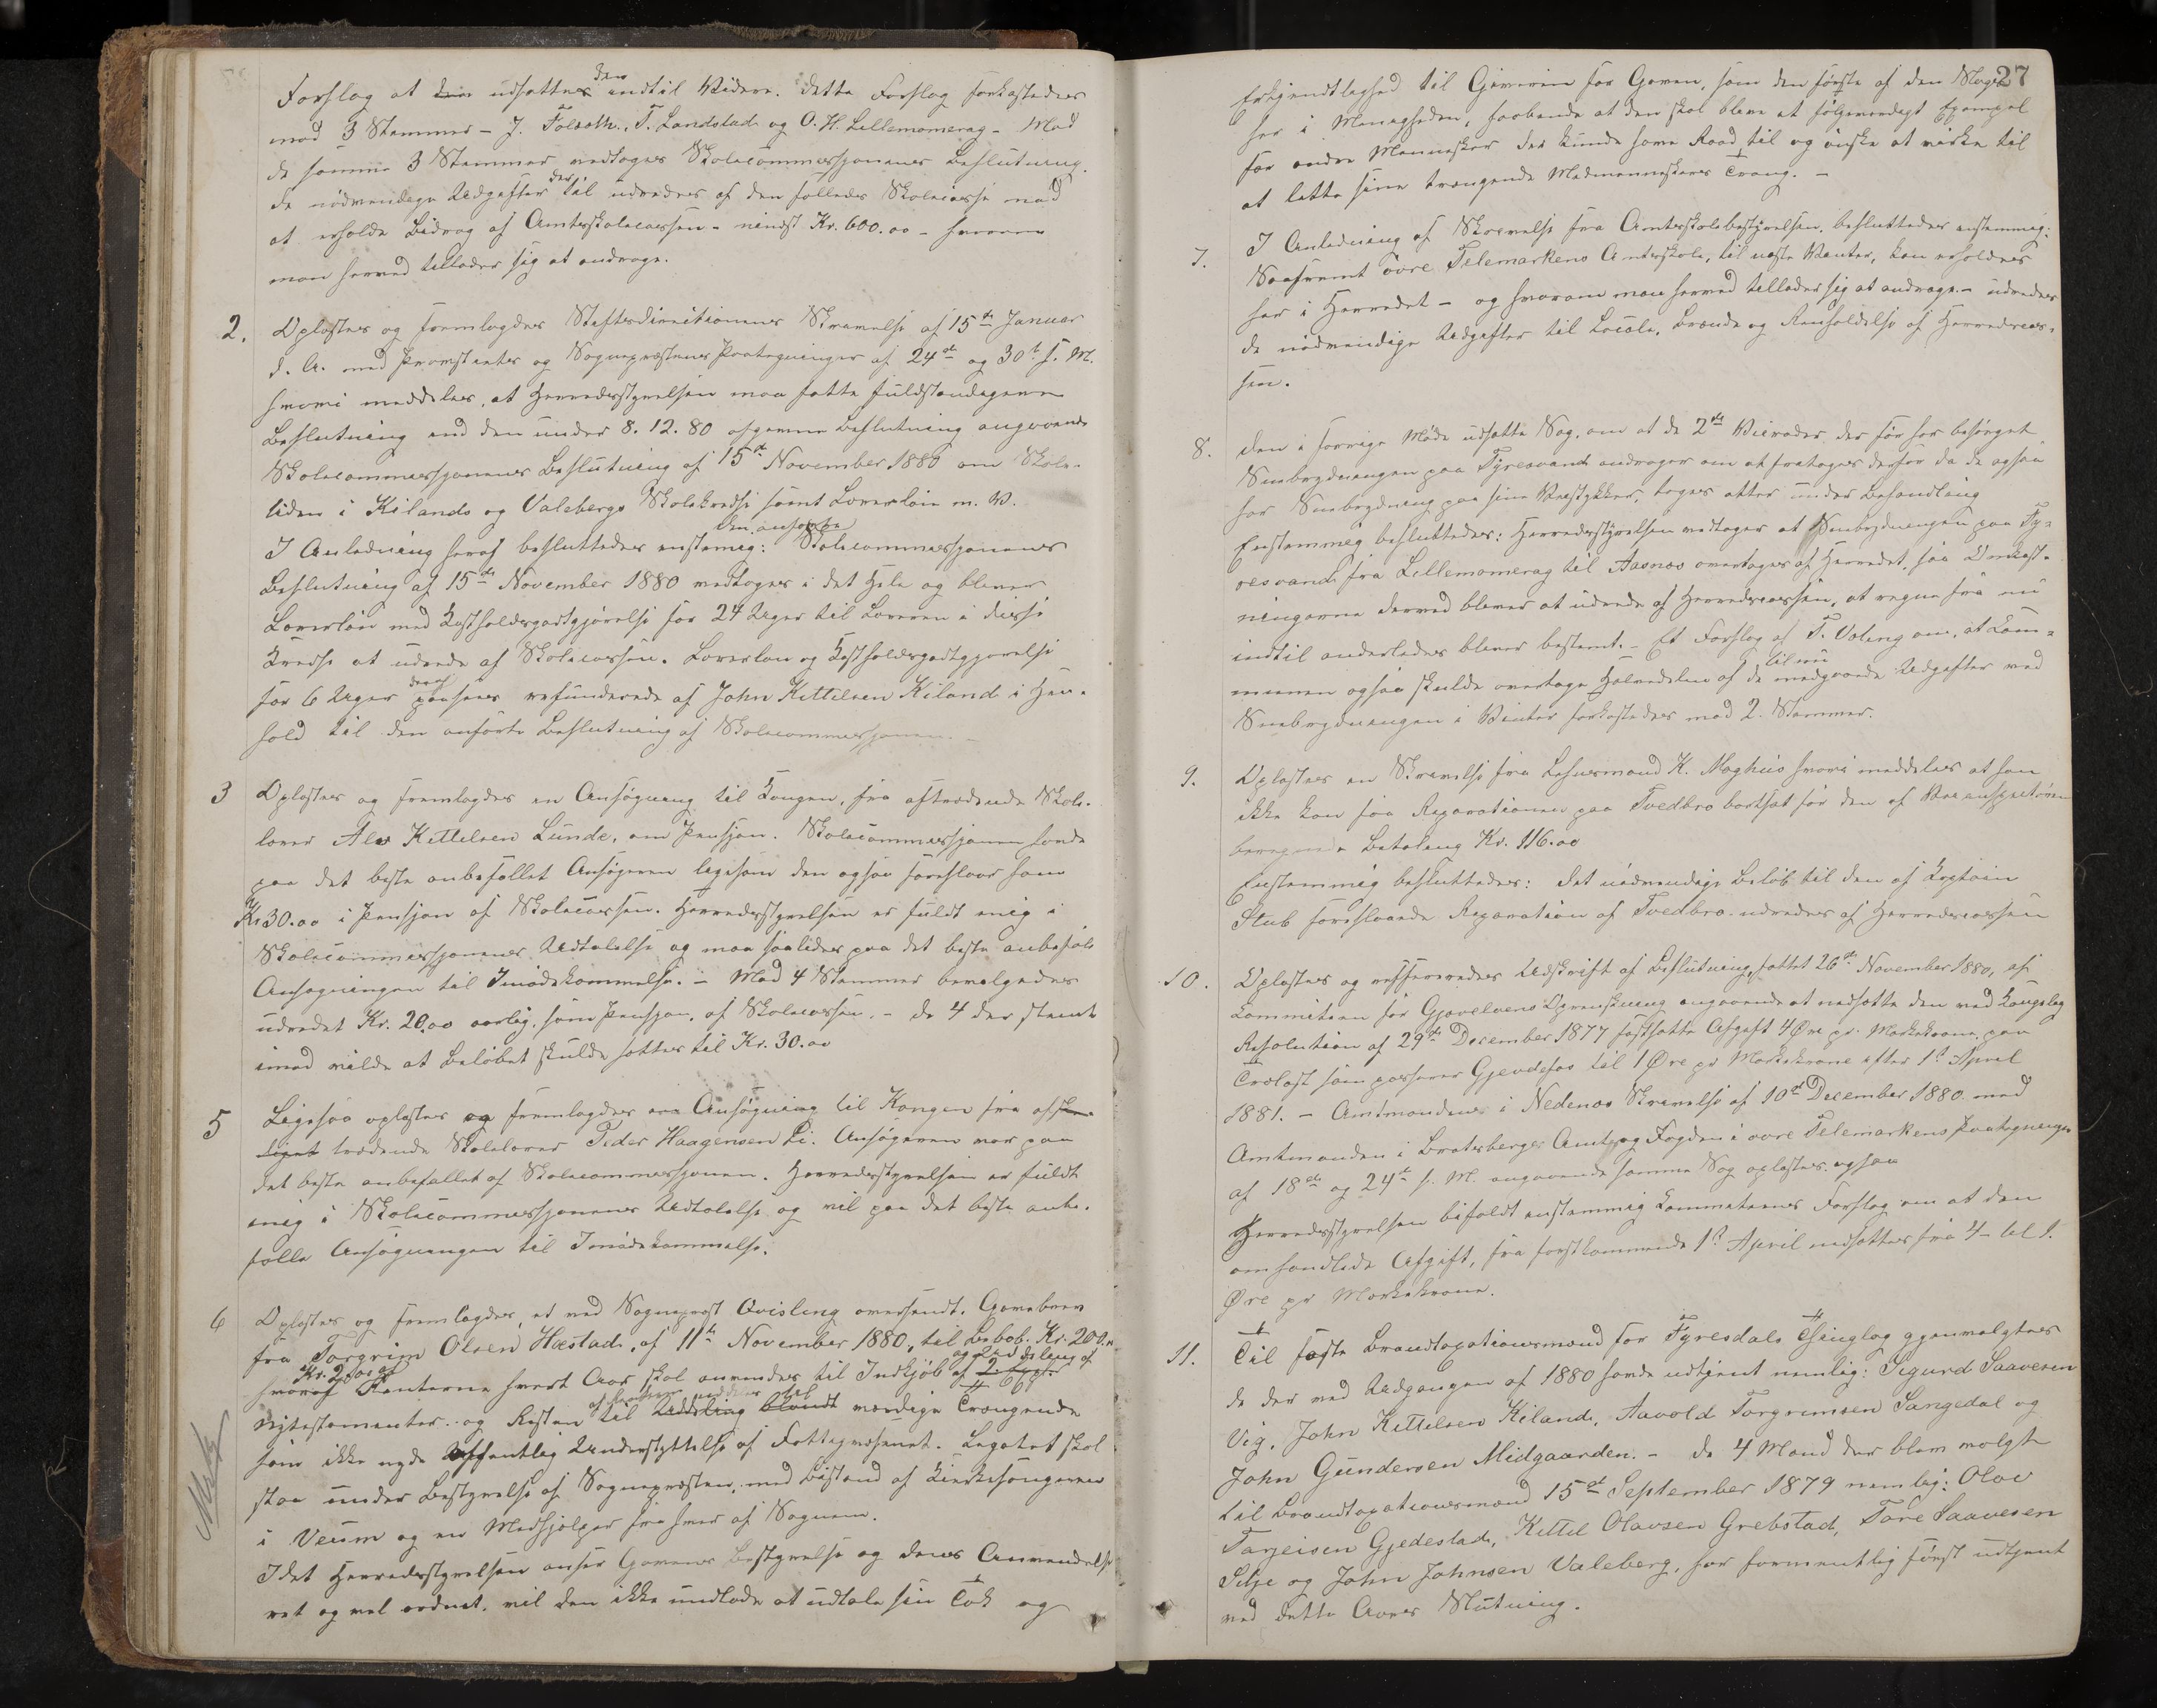 Forslag at den udsattes indtil Videre. Dette Forslag forkastedes
mod 3 Stemmer - J. Folsæth., T. Landstad og O. H. Lillemomerag - Mod
de samme 3 Stemmer vedtoges Skolecommissjonens Beslutning.
de nödvendige Udgifter der til udredes af den fælleds Skolecasse mod
at erholde Bidrag af Amtsskolecassen - mindst Kr. 600.00 - hvorom
man herved tillader sig at andrage.
2. Oplæstes og fremlagdes Stiftsdirectionens Skrivelse af 15de Januar
d. A. med Provstiets og Sognepræstens Paategninger af 24de og 30te s. M.
hvori meddeles, at Herredsstyrelsen maa fatte fuldstændigere
Beslutning end den under 8.12.80 afgivne Beslutning angaaende
Skolecommissjonens Beslutning af 15de November 1880 om Skole-
tiden i Kilands og Valebergs Skolekredse samt Lærerløn m. V.
I Anledning heraf besluttedes enstemig: Den anførte Skolecommissjonens
Beslutning af 15de November 1880 vedtoges i det Hele og bliver
Lærerløn med Kostholdsgodtgjörelse for 24 Uger til Læreren i disse
Kredse at udrede af Skolecassen. Lærerløn og Kostholdsgodtgjørelse
for 6 Uger deraf paasees refunderede af John Kittilsen Kiland i Hen-
hold til den anførte Beslutning af Skolecommissjonen.
3 Oplæstes og fremlagdes en Ansögning til Kongen, fra aftrædende Skole-
lærer Alv Kittilsen Lunde, om Pensjon. Skolecommissjonen havde
paa det beste anbefallet Ansögeren ligesom den ogsaa foreslaar ham
Kr 30.00 i Pensjon af Skolecassen. Herredsstyrelsen er fuldt enig i
Skolecommissjonens Udtalelse og maa saaledes paa det beste anbefale
Ansøgningen til Imødekommelse. - Mod 4 Stemmer bevilgedes
udredet Kr. 20.00 aarlig, som Pensjon, af Skolecassen. - De 4 der stemte
imod vilde at Beløbet skulde sættes til Kr. 30.00
5 Ligesaa oplæstes og fremlagdes en Ansøgning til Kongen fra af
trædende Skolelærer Peder Haagensen Li. Ansøgeren var paa
det beste anbefallet af Skolecommissjonen. Herredsstyrelsen er fuldt
enig i Skolecommissjonens Udtalelse og vil paa det beste anbe-
falle Ansøgningen til Imødekommelse.
6 Oplæstes og fremlagdes, et ved Sogneprest Qvisling oversendt, Gavebrev
fra Torgrim Olsen Hæstad, af 11te November 1880, til Beløb. Kr. 200.00
hvoraf Kr. 2.00 af Renterne hvert Aar skal anvendes til Indkjöb og Uddeling af
nytestamenter og Resten af Renterne uddeles til værdige Trængende
som ikke nyde Offentlig Understøttelse af Fattigvæsenet. Legatet skal
staa under Bestyrelse af Sognepræsten, med Bistand af Kirkesangeren
i Veum og en Medhjælper fra hver af Sognene.
Idet Herredsstyrelsen anser Gavens Bestyrelse og dens Anvendelse
ret og vel ordnet, vil den ikke undlade at udtale sin Tak og
27
Erkjendtlighed til Giveren for Gaven, som den første af den Slags
her i Menigheden, haabende at den skal blive et følgeværdigt Exempel
for andre Mennesker der kunde have Raad til og ønske at virke til
at lette sine trængende Medmenneskers Trang. -
7. I Anledning af Skrivelse fra Amtsskolebestyrelsen, besluttedes enstemmig:
Saafremt øvre Telemarkens Amtsskole, til næste Vinter, kan erholdes
her i Herredet - og hvorom man herved tillader sig at andrage - udredes
de nödvendige Udgifter til Locale, Brænde og Renholdelse af Herredscas-
sen.
8. Den i forrige Møde udsatte Sag, om at de 2de Veiroder der før har besörget
Snebrydningen paa Fyresvand andrager om at fratages derfor da de ogsaa
har Snebrydning paa sine Veistykker, toges atter under Behandling
Enstemmig besluttedes: Herredsstyrelsen vedtager at Snebrydningen paa Fy-
resvand fra Lillemomerag til Aasnæs overtages af Herredet, saa Omkost-
ningerne derved bliver at udrede af Herredscassen, at regne fra nu
indtil anderledes bliver bestemt. - Et Forslag af T. Veting om, at Kom-
munen ogsaa skulde overtage Halvdelen af de til nu medgaaede Udgifter ved
Snebrydningen i Vinter forkastedes mod 2. Stemmer.
9. Oplæstes en Skrivelse fra Lehnsmand K. Moghus hvori meddeles at han
ikke kan faa Reparationen paa Tvedbro bortsat for den af Veiinspectøren
beregnede Betaling Kr. 116.00
Enstemmig besluttedes: Det nödvendige Beløb til den af Kaptain
Stub foreslaaede Reparation af Tvedbro udredes af Herredscassen
10. Oplæstes og refereredes Udskrift af Beslutning, fattet 26de November 1880, af
Kommiteen for Gjøvelvens Oprensning angaaende at nedsætte den ved Kongelig
Resolution af 29de December 1877 fastsatte Afgift 4 Øre pr. Markekrone paa
Trælast som passerer Gjevdefos til 1 Øre pr Markekrone efter 1ste April
1881. - Amtmandens i Nedenæs Skrivelse af 10de December 1880 med
Amtmanden i Bratsbergs Amts og Fogden i øvre Telemarkens Paategninger
af 18de og 24de s. M. angaaende samme Sag oplæstes ogsaa
Herredsstyrelsen bifaldt enstemmig Kommiteens Forslag om at den
omhandlede Afgift, fra førstkommende 1ste April nedsættes fra 4 - til 1.
Øre pr Markekrone.
11. Til faste Brandtaxationsmænd for Fyresdals Thinglag gjenvalgtes
de der ved Udgangen af 1880 havde udtjent nemlig: Sigurd Saavesen
Vig, John Kittilsen Kiland, Aavold Torgrimsen Sangedal og
John Gundersen Midgaarden. - De 4 Mænd der blev valgte
til Brandtaxationsmænd 15de September 1879 nemlig: Olav
Tarjeisen Gjedestad, Kittil Olavsen Grebstad, Tore Saavesen
Silje og John Johnsen Valeberg, har formentlig først udtjent
ved dette Aares Slutning.